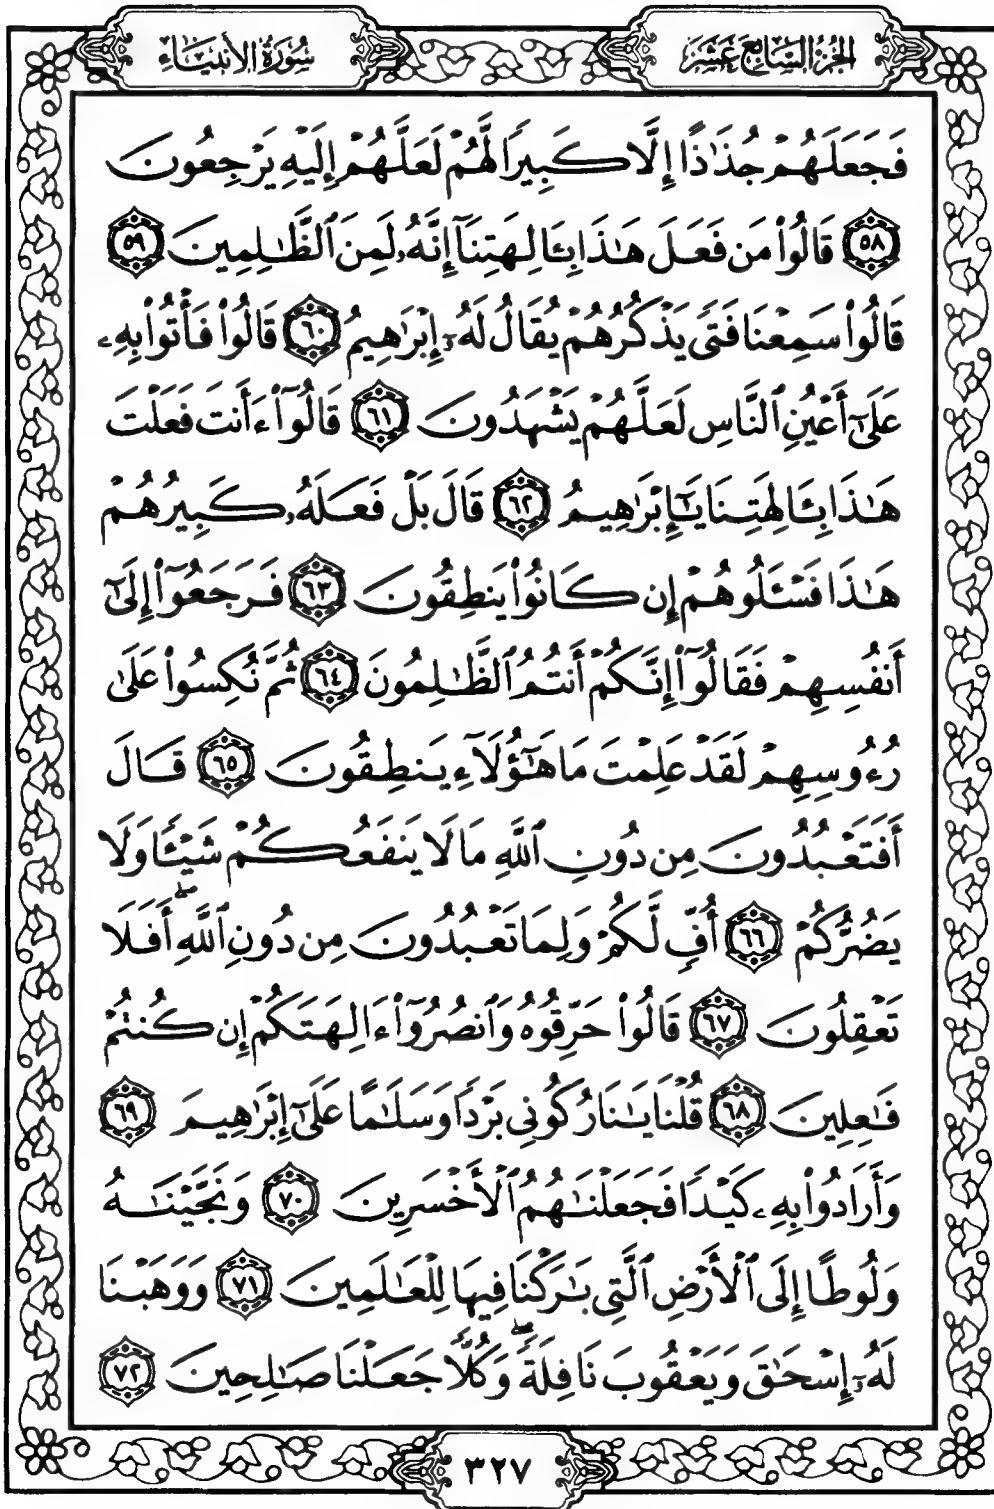 الجزء السابع عشر
سورة الأنبياء
فَجَعَلَهُمْ جُذَٰذًا إِلَّا كَبِيرًا لَّهُمْ لَعَلَّهُمْ إِلَيْهِ يَرْجِعُونَ
﴿٥٨﴾ قَالُوا۟ مَن فَعَلَ هَٰذَا بِـَٔالِهَتِنَآ إِنَّهُۥ لَمِنَ ٱلظَّٰلِمِينَ ﴿٥٩﴾
قَالُوا۟ سَمِعْنَا فَتًى يَذْكُرُهُمْ يُقَالُ لَهُۥٓ إِبْرَٰهِيمُ ﴿٦٠﴾ قَالُوا۟ فَأْتُوا۟ بِهِۦ
عَلَىٰٓ أَعْيُنِ ٱلنَّاسِ لَعَلَّهُمْ يَشْهَدُونَ ﴿٦١﴾ قَالُوٓا۟ ءَأَنتَ فَعَلْتَ
هَٰذَا بِـَٔالِهَتِنَا يَٰٓإِبْرَٰهِيمُ ﴿٦٢﴾ قَالَ بَلْ فَعَلَهُۥ كَبِيرُهُمْ
هَٰذَا فَسْـَٔلُوهُمْ إِن كَانُوا۟ يَنطِقُونَ ﴿٦٣﴾ فَرَجَعُوٓا۟ إِلَىٰٓ
أَنفُسِهِمْ فَقَالُوٓا۟ إِنَّكُمْ أَنتُمُ ٱلظَّٰلِمُونَ ﴿٦٤﴾ ثُمَّ نُكِسُوا۟ عَلَىٰ
رُءُوسِهِمْ لَقَدْ عَلِمْتَ مَا هَٰٓؤُلَآءِ يَنطِقُونَ ﴿٦٥﴾ قَالَ
أَفَتَعْبُدُونَ مِن دُونِ ٱللَّهِ مَا لَا يَنفَعُكُمْ شَيْـًٔا وَلَا
يَضُرُّكُمْ ﴿٦٦﴾ أُفٍّ لَّكُمْ وَلِمَا تَعْبُدُونَ مِن دُونِ ٱللَّهِ ۖ أَفَلَا
تَعْقِلُونَ ﴿٦٧﴾ قَالُوا۟ حَرِّقُوهُ وَٱنصُرُوٓا۟ ءَالِهَتَكُمْ إِن كُنتُمْ
فَٰعِلِينَ ﴿٦٨﴾ قُلْنَا يَٰنَارُ كُونِى بَرْدًا وَسَلَٰمًا عَلَىٰٓ إِبْرَٰهِيمَ ﴿٦٩﴾
وَأَرَادُوا۟ بِهِۦ كَيْدًا فَجَعَلْنَٰهُمُ ٱلْأَخْسَرِينَ ﴿٧٠﴾ وَنَجَّيْنَٰهُ
وَلُوطًا إِلَى ٱلْأَرْضِ ٱلَّتِى بَٰرَكْنَا فِيهَا لِلْعَٰلَمِينَ ﴿٧١﴾ وَوَهَبْنَا
لَهُۥٓ إِسْحَٰقَ وَيَعْقُوبَ نَافِلَةً ۖ وَكُلًّا جَعَلْنَا صَٰلِحِينَ ﴿٧٢﴾
٣٢٧